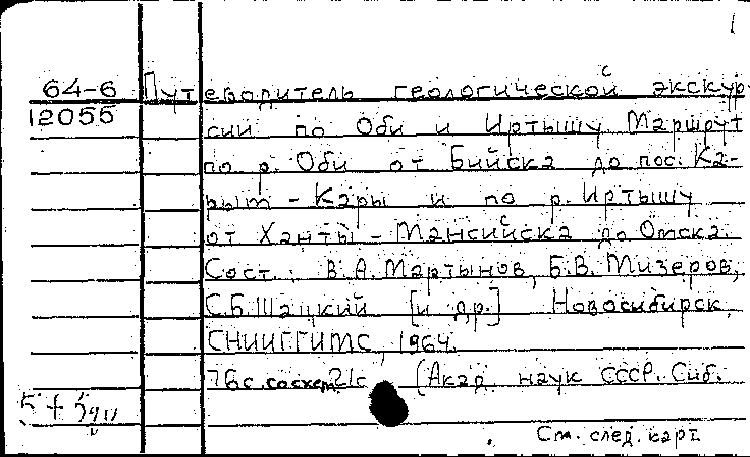 1
64-6 Путеводитель геологической экскур-
12055 сии по Оби и Иртышу. Маршрут
по р. Оби от Бийска до пос. Ка-
рым-Кары и по р. Иртышу
от Ханты-Мансийска до Омска.
Сост.: В.А. Мартынов, Б.В. Мизеров,
С.Б. Шацкий [и др.] Новосибирск,
СНИИГГИМС, 1964.
76 с. со схем. 21 с (Акад. наук СССР. Сиб.
См. след. карт.